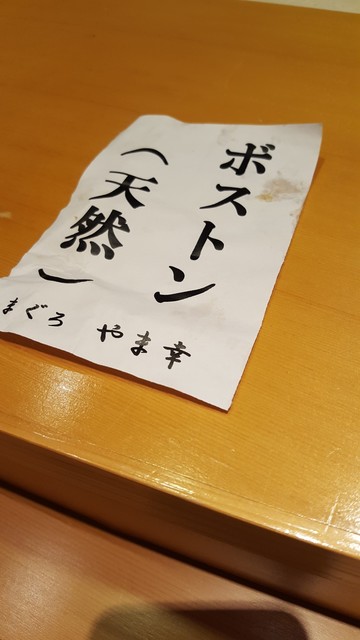 ボストン
（天然）
まぐろ やま幸